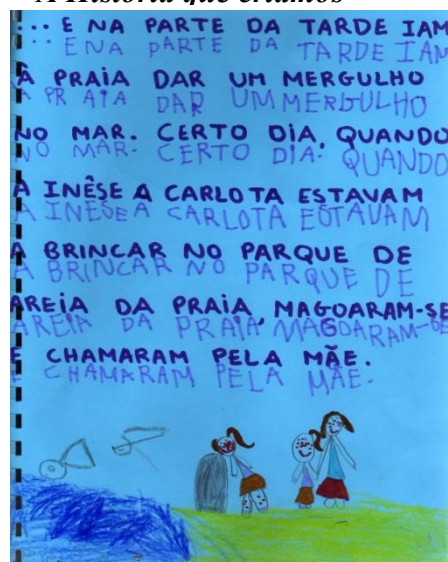 A História que criámos
... E NA PARTE DA TARDE IAM
... ENA PARTE DA TARDE IAM
À PRAIA DAR UM MERGULHO
A PRAIA DAR UM MERGULHO
NO MAR. CERTO DIA, QUANDO
NO MAR. CERTO DIA. QUANDO
A INÊS E A CARLOTA ESTAVAM
A INÊSE A CARLOTA ESTAVAM
A BRINCAR NO PARQUE DE
A BRINCAR NO PARQUE DE
AREIA DA PRAIA, MAGOARAM-SE
AREIA DA PRAIA, MAGOARAM-SE
E CHAMARAM PELA MÃE.
E CHAMARAM PELA MÃE.